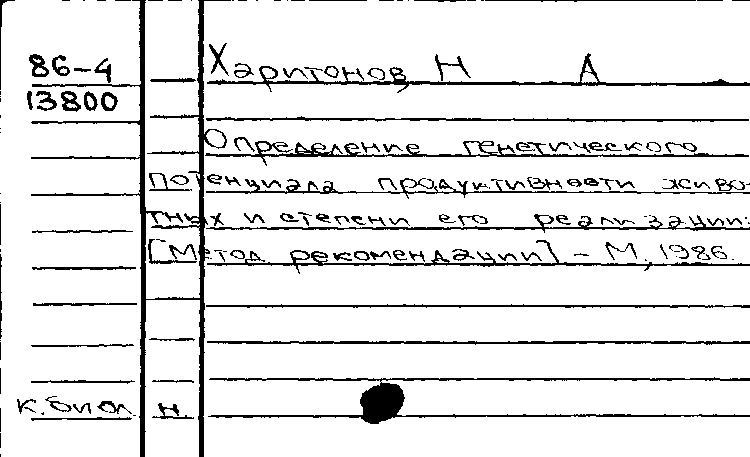 86-4
13800
Харитонов, Н А
Определение генетического
потенциала продуктивности живо-
тных и степени его реализации:
[Метод рекомендации] - М, 1986.
к. биол н.